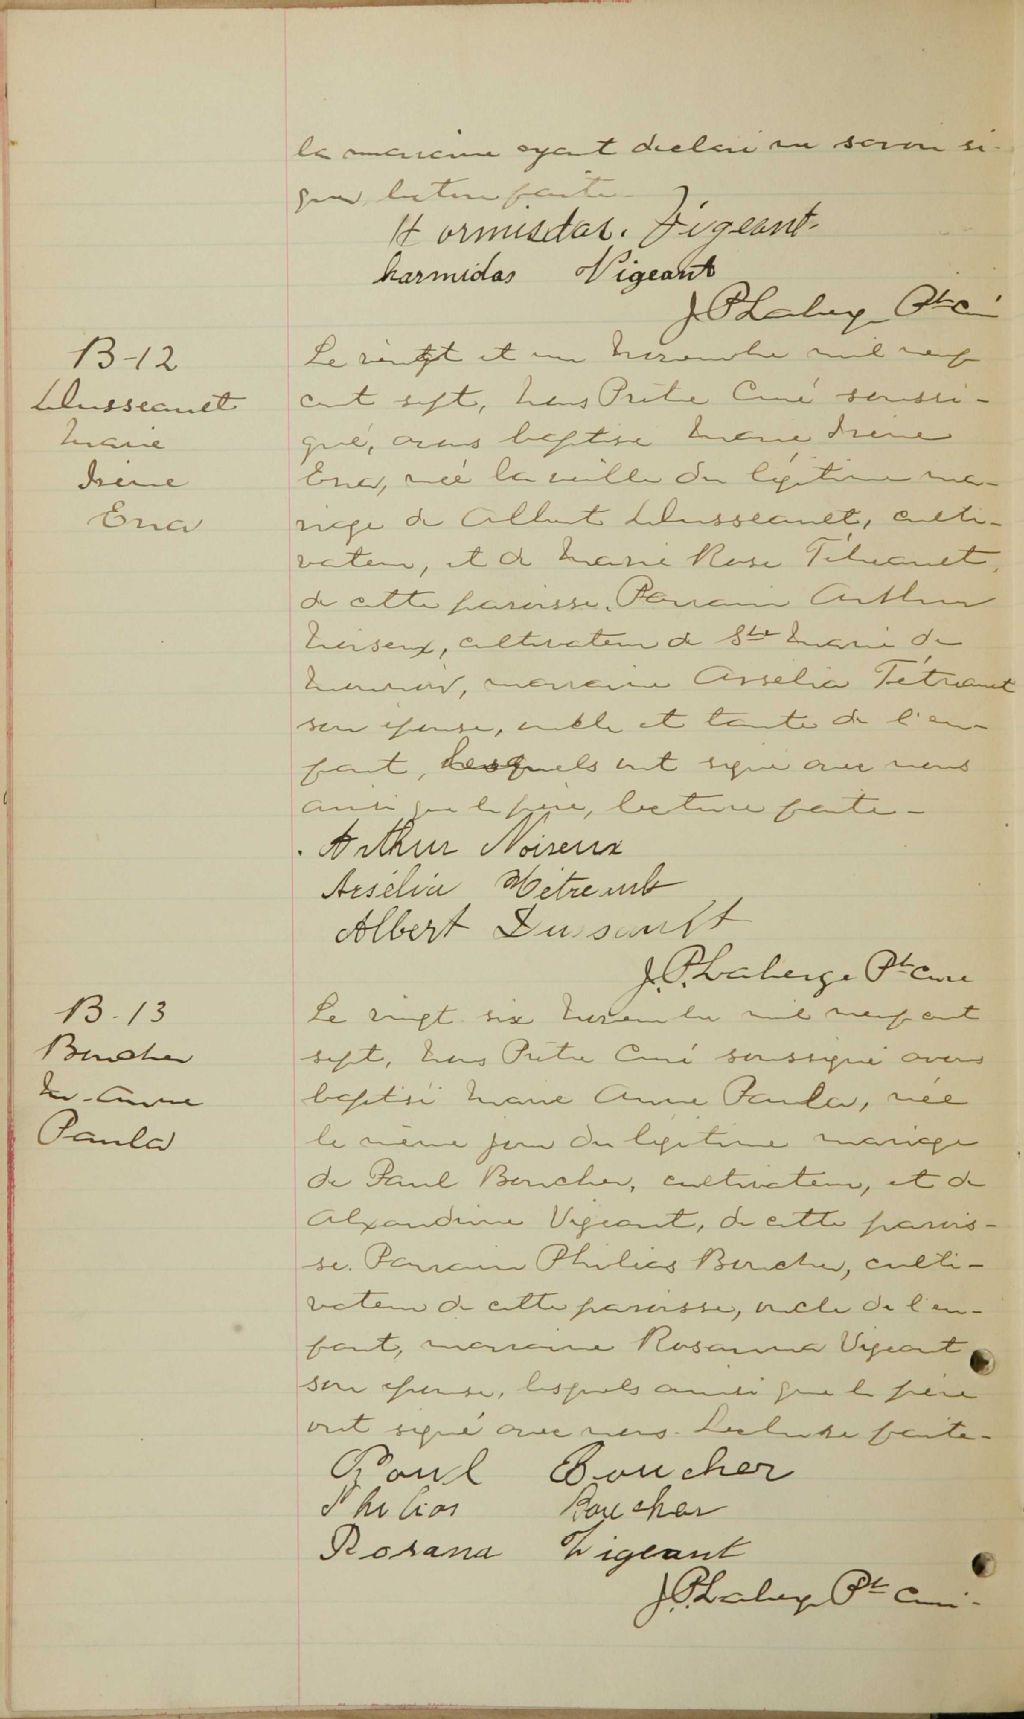 la marraine ayant déclaré ne savoir si-
gner, lecture faite.
Hormisdas. Vigeant
harmidas Vigeant
J P Laberge Ptre Curé
B-12
Dusseault
Marie
Irène
Ena
Le vingt et un Novembre mil neuf
cent sept, Nous Prêtre Curé soussi-
gné, avons baptisé Marie Irène
Ena, née la veille du légitime ma-
riage de Albert Dusseault, culti-
vateur, et de Marie Rose Tétreault,
de cette paroisse. Parrain Arthur
Noiseux, cultivateur de Ste Marie de
Monnoir, marraine Arsélia Tétreault
son épouse, oncle et tante de l'en-
fant, lesquels ont signé avec nous
ainsi que le père, lecture faite-
Arthur Noiseux
Arsélia Tétreault
Albert Dussault
J. P. Laberge Ptre Curé
B-13
Boucher
M-Anne
Paula
Le vingt six Novembre mil neuf cent
sept, Nous Prêtre Curé soussigné avons
baptisé Marie Anne Paula, née
le même jour du légitime mariage
de Paul Boucher, cultivateur, et de
Alexandrine Vigeant, de cette parois-
se. Parrain Philias Boucher, culti-
vateur de cette paroisse, oncle de l'en-
fant, marraine Rosanna Vigeant
son épouse, lesquels ainsi que le père
ont signé avec nous. Lecture faite-
Paul Boucher
Philias Boucher
Rosana Vigeant
J. P. Laberge Ptre Curé-